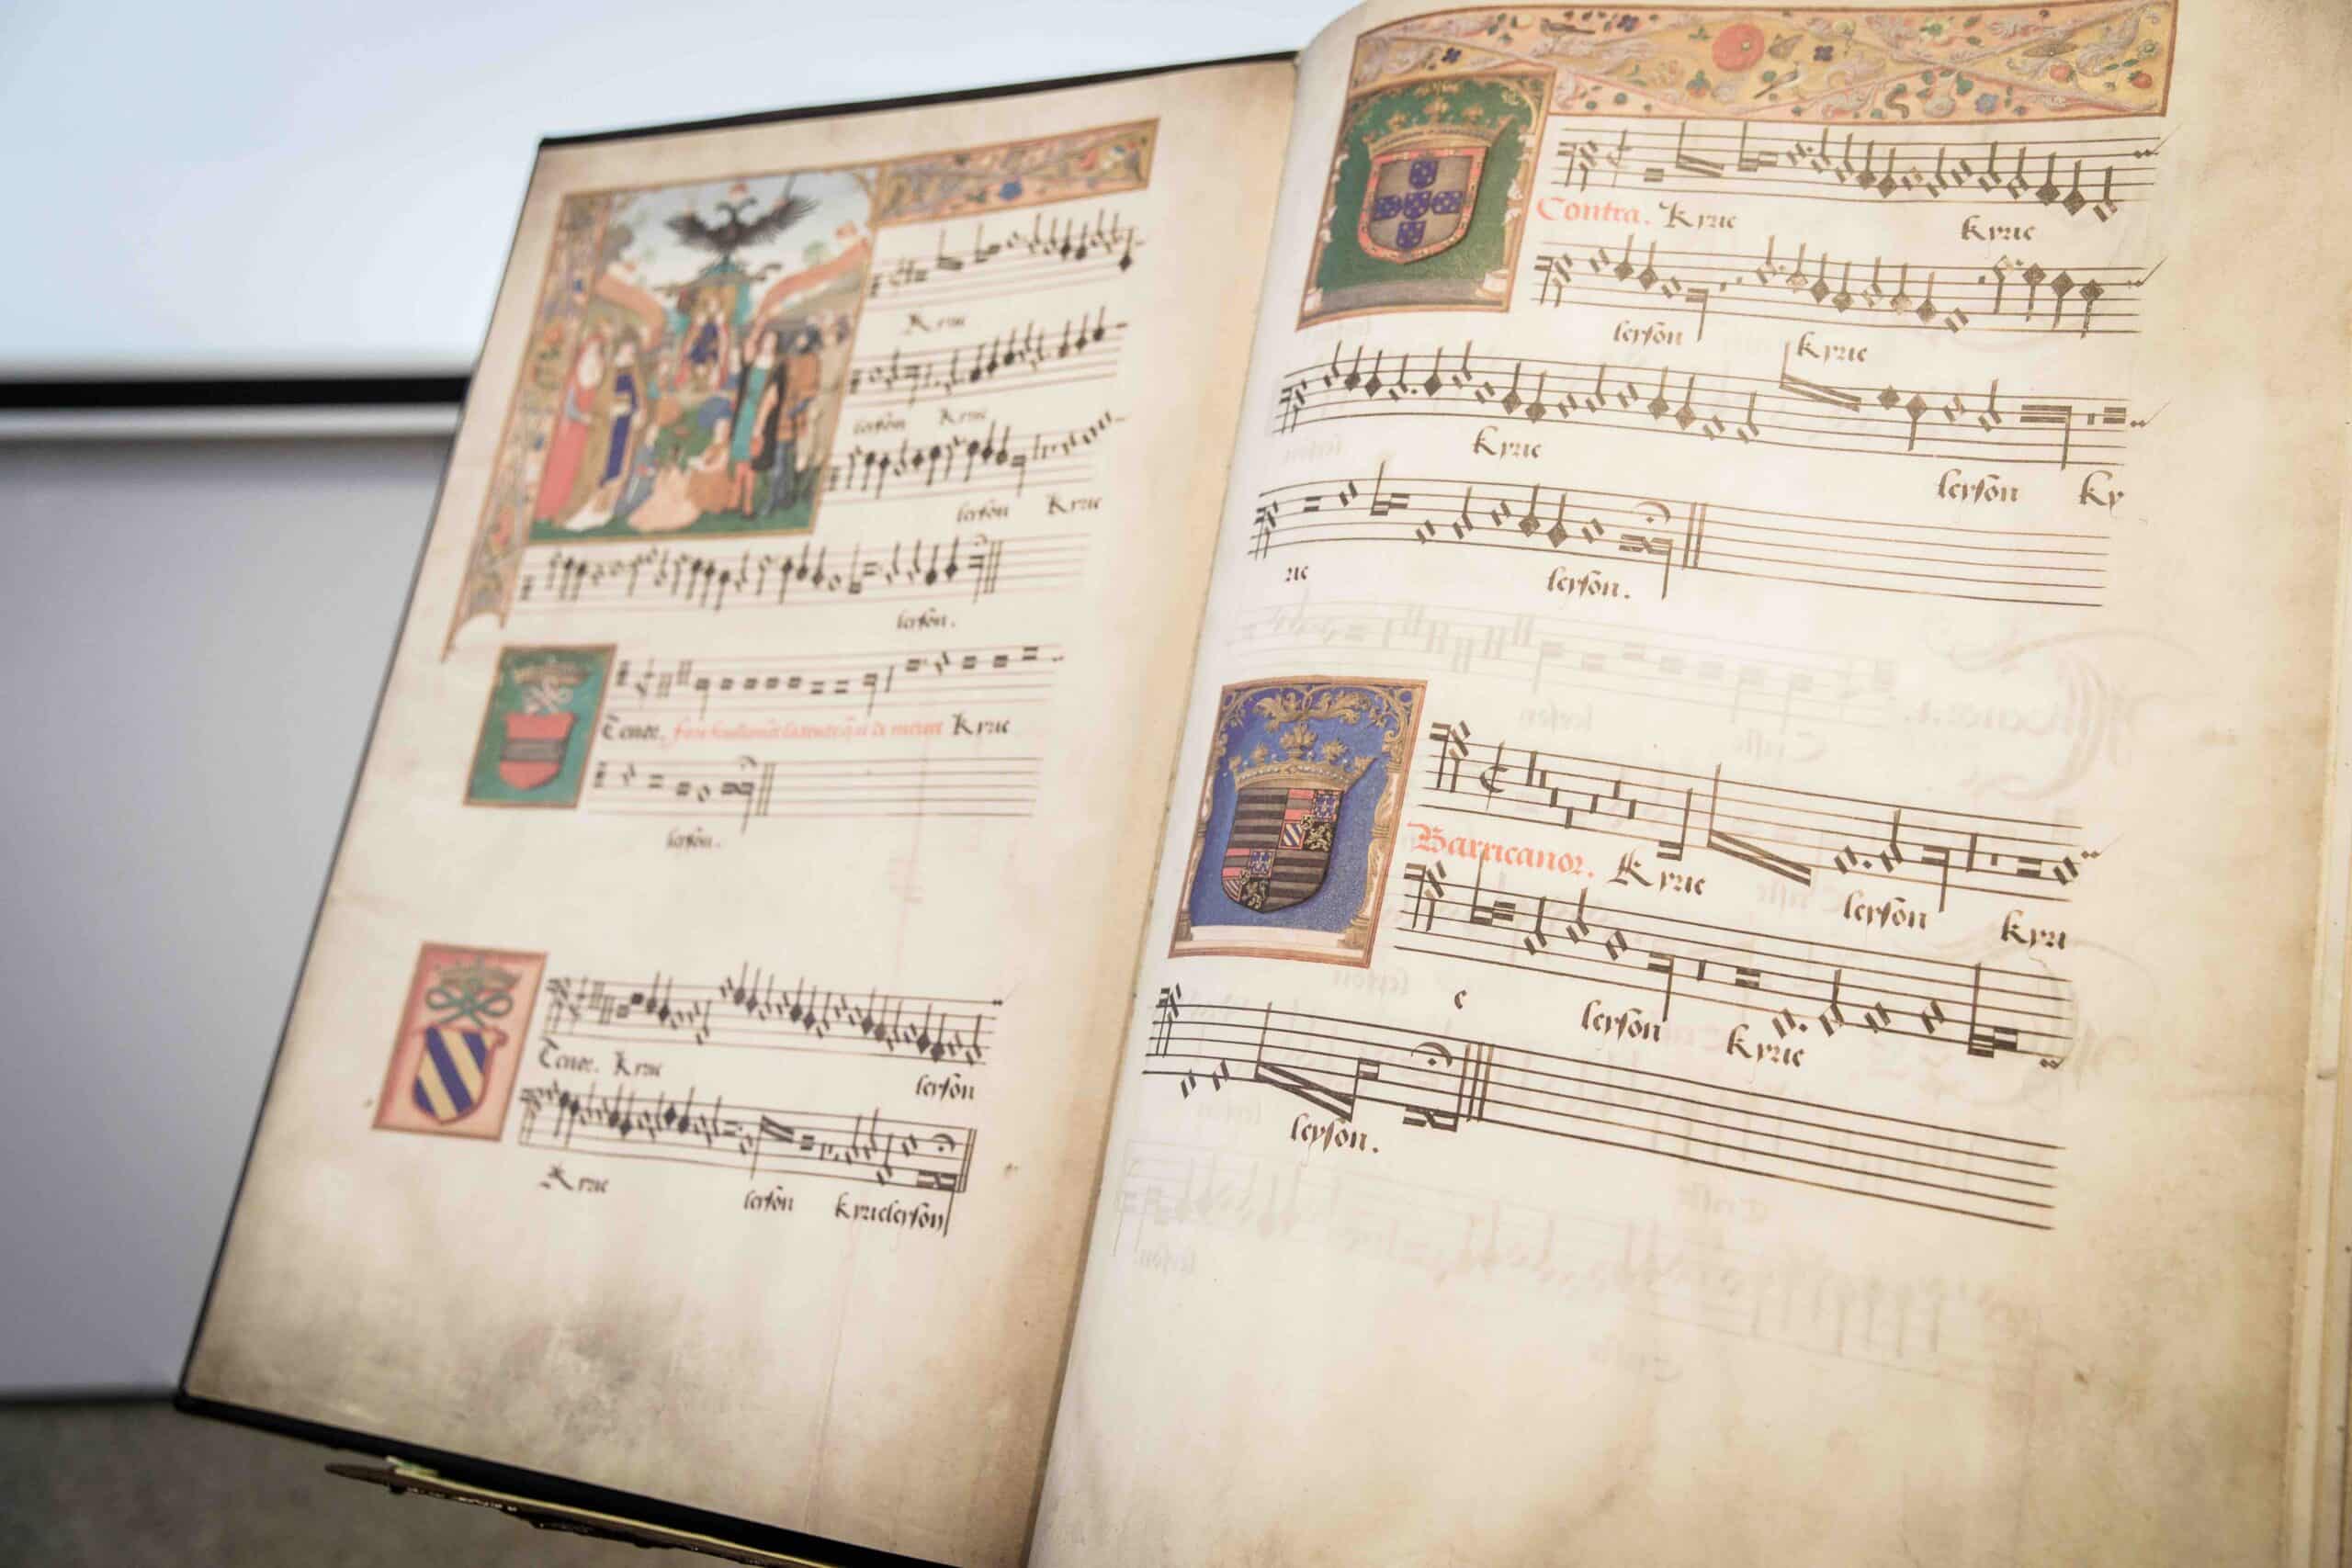 Kyrie
leyson Kyrie
leyson Kyrie
leyson.
Tenor. Kyrie
leyson.
Tenor. Kyrie
leyson
Kyrie leyson kyrieleyson
Contra. Kyrie kyrie
leyson kyrie
kyrie leyson ky
rie leyson.
Barricanor. Kyrie leyson kyri
e leyson kyrie
leyson.